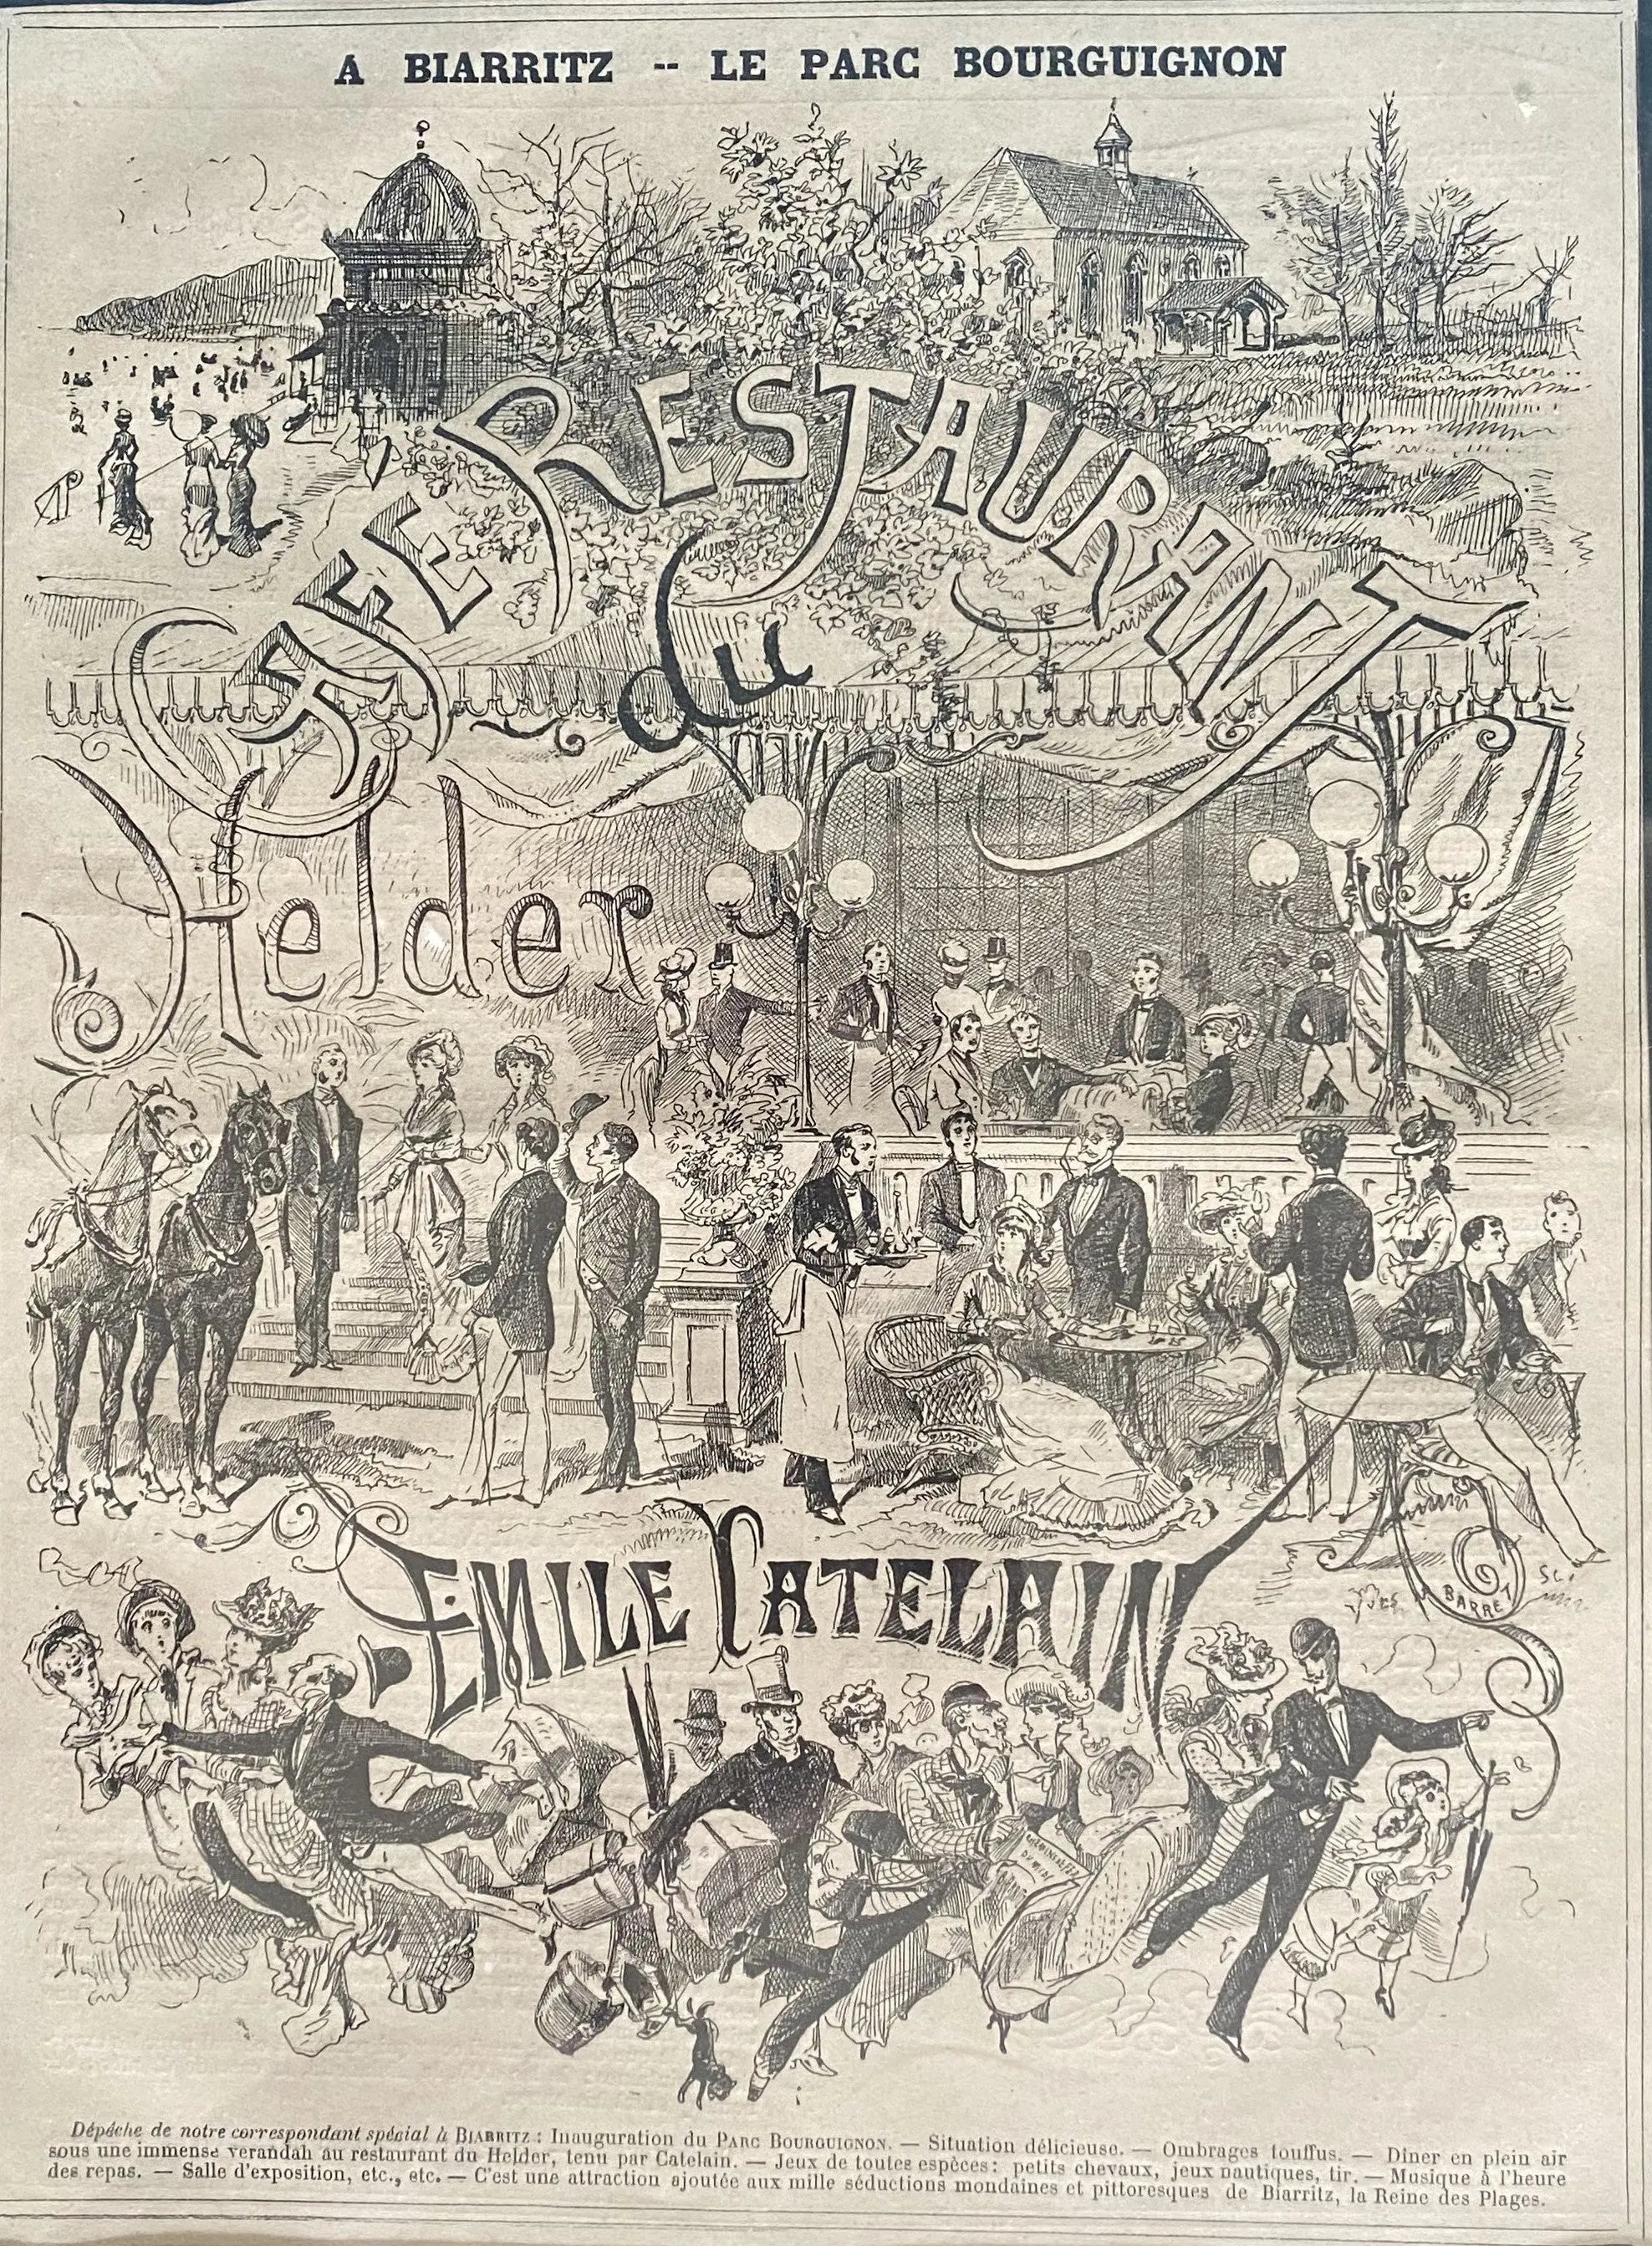 A BIARRITZ -- LE PARC BOURGUIGNON
CAFÉ RESTAURANT
du
Helder
EMILE CATELAIN
Yves BARRET SC.
Dépêche de notre correspondant spécial à BIARRITZ : Inauguration du PARC BOURGUIGNON. — Situation délicieuse. — Ombrages touffus. — Dîner en plein air
sous une immense verandah au restaurant du Helder, tenu par Catelain. — Jeux de toutes espèces : petits chevaux, jeux nautiques, tir. — Musique à l'heure
des repas. — Salle d'exposition, etc., etc. — C'est une attraction ajoutée aux mille séductions mondaines et pittoresques de Biarritz, la Reine des Plages.